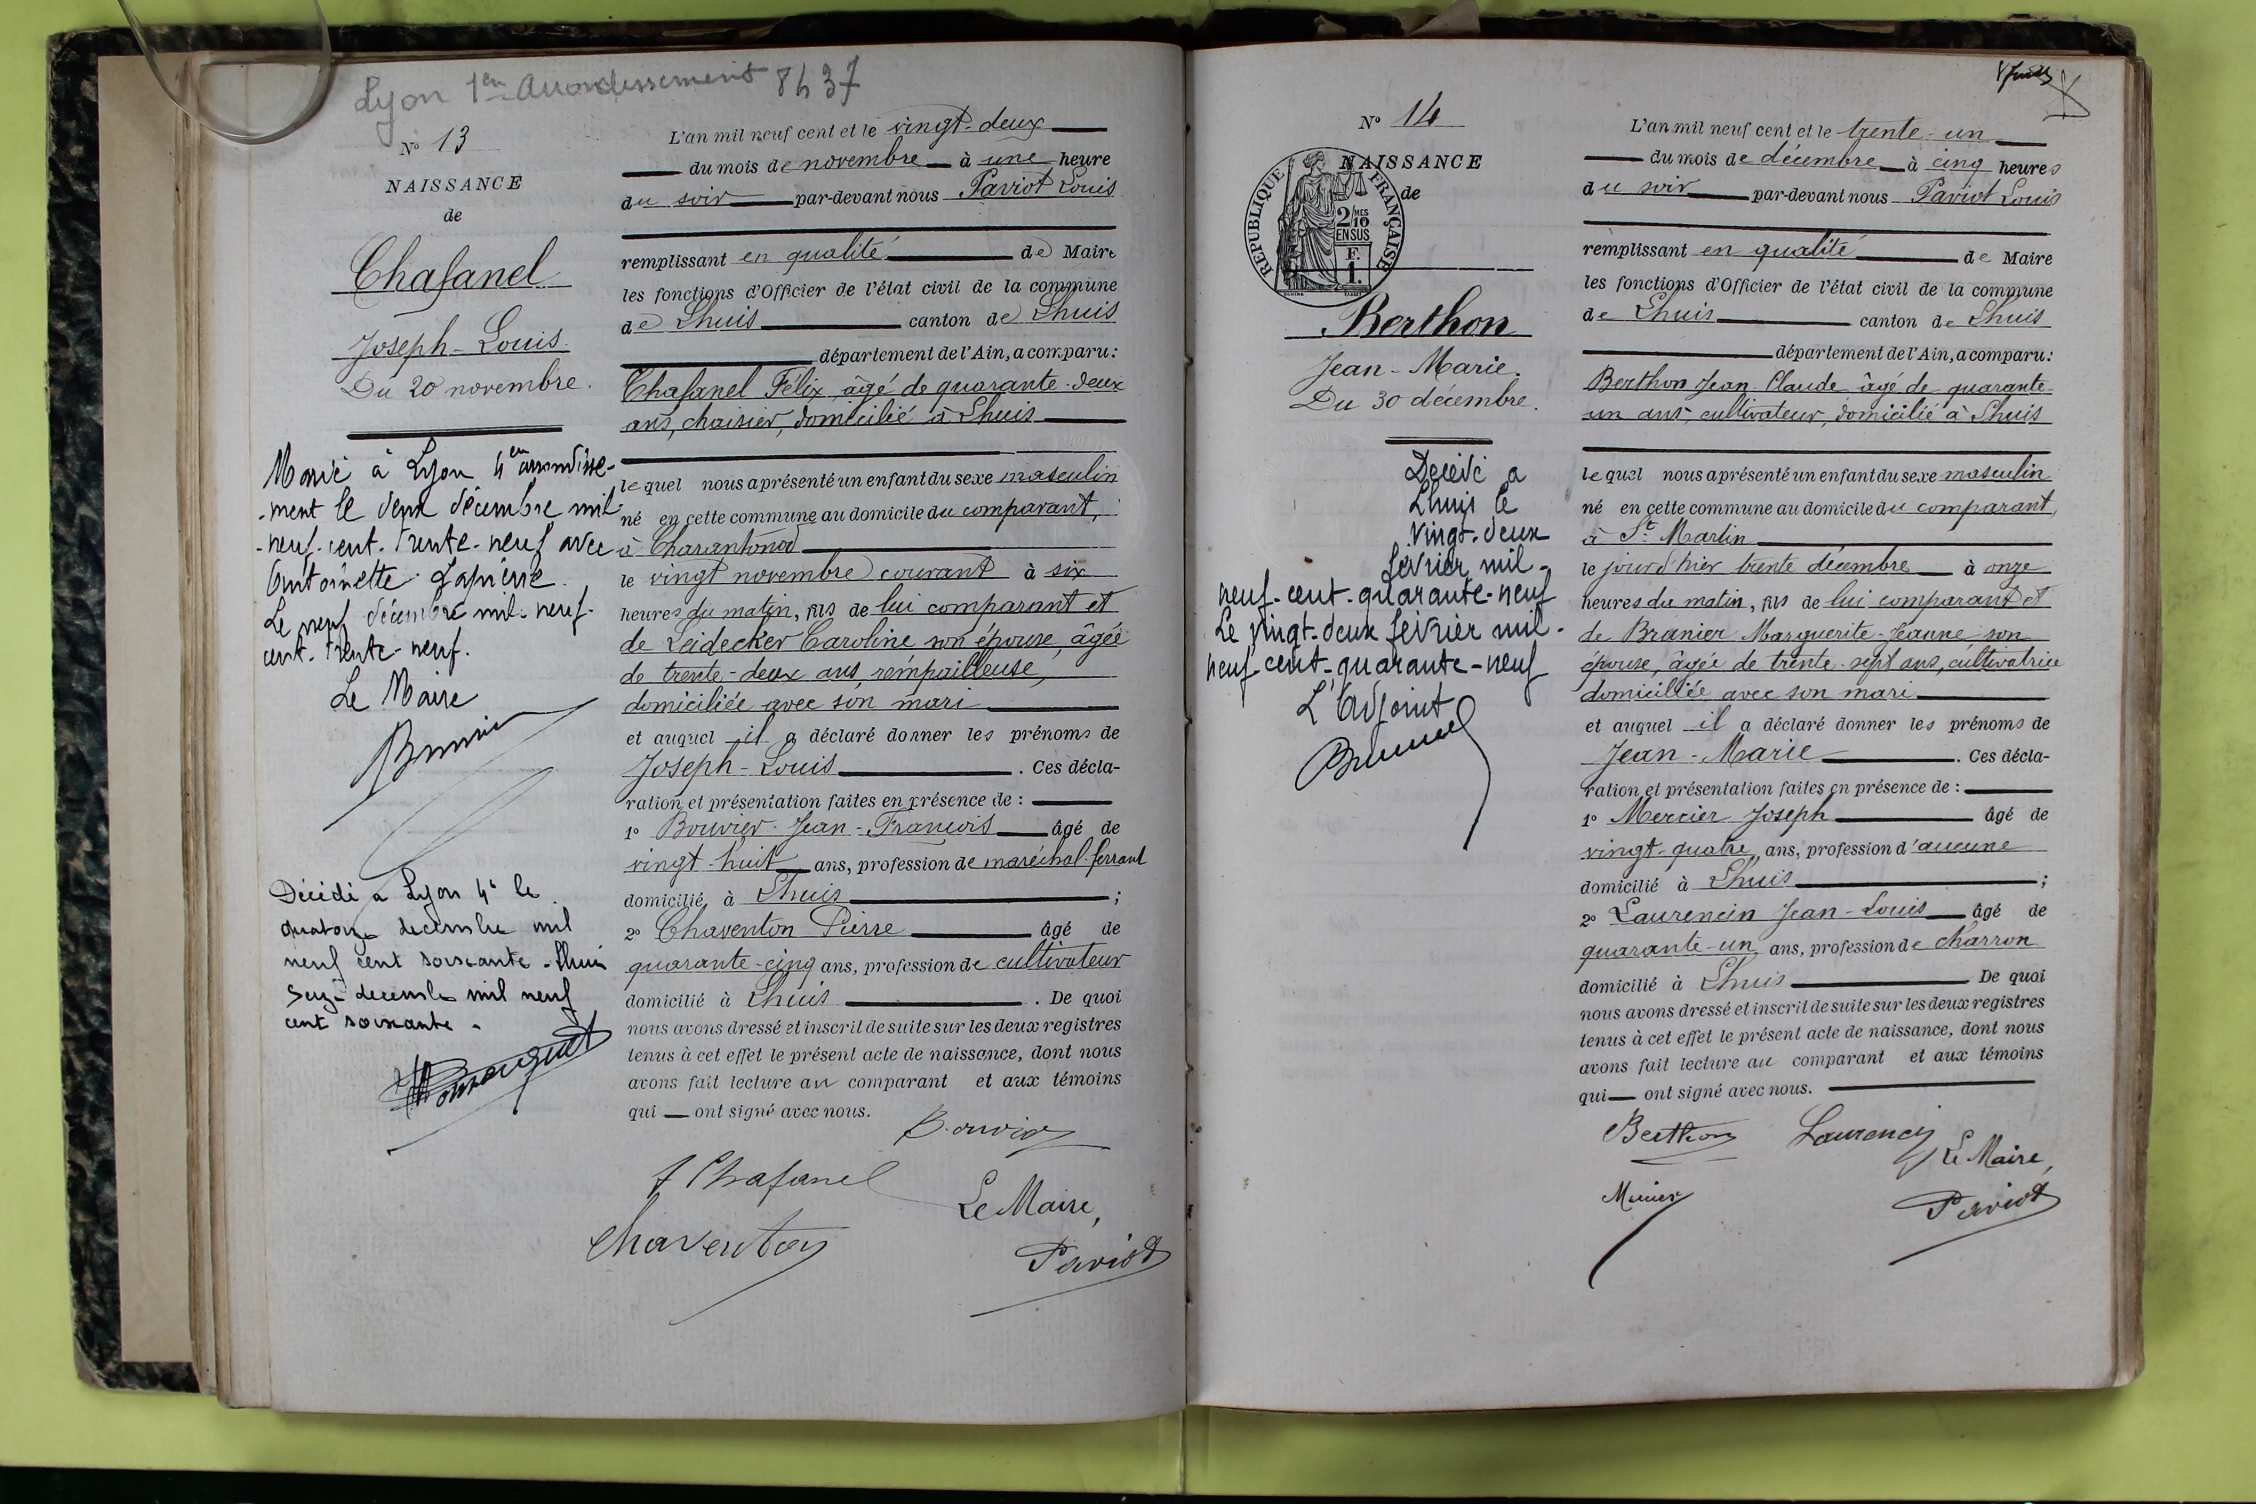 Lyon 1er Arrondissement 8437
N° 13
NAISSANCE
de
Chafanel
Joseph-Louis
Du 20 novembre.
Marié à Lyon 4en arrondisse-
-ment le deux décembre mil-
-neuf-cent-trente-neuf avec
Antoinette Lapierre.
Le neuf décembre mil-neuf-
cent-trente-neuf.
Le Maire
Décédé à Lyon 4e le
quatorze décembre mil
neuf cent soixante - Lhuis
seize décembre mil neuf
cent soixante.
L'an mil neuf cent et le vingt-deux
du mois de novembre à une heure
du soir par-devant nous Paviot Louis
remplissant en qualité de Maire
les fonctions d'Officier de l'état civil de la commune
de Lhuis canton de Lhuis
département de l'Ain, a comparu:
Chafanel Félix âgé de quarante-deux
ans, chaisier, domicilié à Lhuis
lequel nous a présenté un enfant du sexe masculin
né en cette commune au domicile du comparant,
à Charantonod
le vingt novembre courant à six
heures du matin, fils de lui comparant et
de Leidecker Caroline son épouse, âgée
de trente-deux ans, rempailleuse,
domiciliée avec son mari
et auquel il a déclaré donner les prénoms de
Joseph-Louis. Ces décla-
ration et présentation faites en présence de :
1° Bouvier Jean-François âgé de
vingt-huit ans, profession de maréchal-ferrant
domicilié à Lhuis ;
2° Chaventon Pierre âgé de
quarante-cinq ans, profession de cultivateur
domicilié à Lhuis. De quoi
nous avons dressé et inscrit de suite sur les deux registres
tenus à cet effet le présent acte de naissance, dont nous
avons fait lecture au comparant et aux témoins
qui ont signé avec nous.
Bouvier
F Chafanel
Le Maire,
Chaventon
Paviot
N° 14
NAISSANCE
de
RÉPUBLIQUE FRANÇAISE
2/10MES
EN SUS
F.
1.
Berthon
Jean-Marie.
Du 30 décembre.
Décédé à
Lhuis le
vingt-deux
février mil-
neuf-cent-quarante-neuf
Le vingt-deux février mil-
neuf-cent-quarante-neuf
L'adjoint
L'an mil neuf cent et le trente-un
du mois de décembre à cinq heures
du soir par-devant nous Paviot Louis
remplissant en qualité de Maire
les fonctions d'Officier de l'état civil de la commune
de Lhuis canton de Lhuis
département de l'Ain, a comparu:
Berthon Jean-Claude âgé de quarante-
un ans, cultivateur, domicilié à Lhuis
lequel nous a présenté un enfant du sexe masculin
né en cette commune au domicile du comparant,
à St Martin
le jourd'hier trente décembre à onze
heures du matin, fils de lui comparant et
de Branier Marguerite-Jeanne son
épouse, âgée de trente-sept ans, cultivatrice
domiciliée avec son mari
et auquel il a déclaré donner les prénoms de
Jean-Marie. Ces décla-
ration et présentation faites en présence de :
1° Mercier Joseph âgé de
vingt-quatre ans, profession d'aucune
domicilié à Lhuis ;
2° Laurencin Jean-Louis âgé de
quarante-un ans, profession de charron
domicilié à Lhuis De quoi
nous avons dressé et inscrit de suite sur les deux registres
tenus à cet effet le présent acte de naissance, dont nous
avons fait lecture au comparant et aux témoins
qui ont signé avec nous.
Berthon Laurencin
Le Maire,
Mercier
Paviot